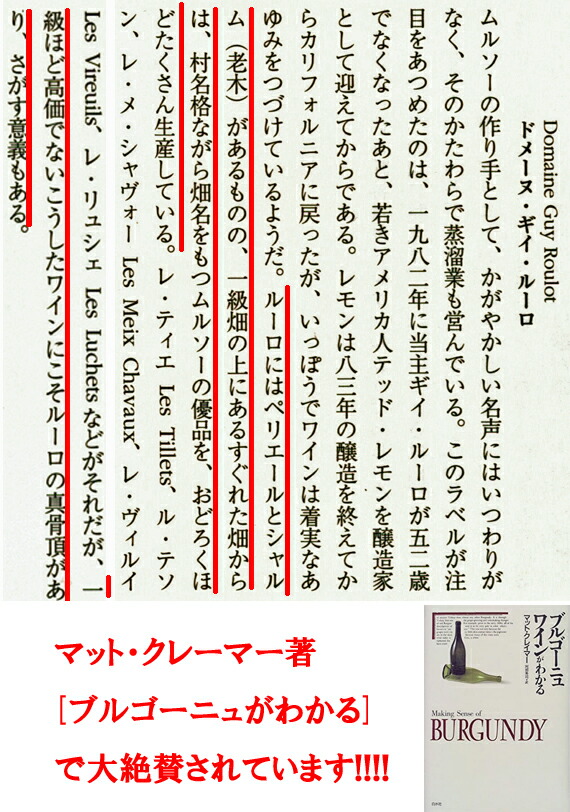 Domaine Guy Roulot
ドメーヌ・ギイ・ルーロ
ムルソーの作り手として、かがやかしい名声にはいつわりが
なく、そのかたわらで蒸溜業も営んでいる。このラベルが注
目をあつめたのは、一九八二年に当主ギイ・ルーロが五二歳
でなくなったあと、若きアメリカ人テッド・レモンを醸造家
として迎えてからである。レモンは八三年の醸造を終えてか
らカリフォルニアに戻ったが、いっぽうでワインは着実なあ
ゆみをつづけているようだ。ルーロにはペリエールとシャル
ム（老木）があるものの、一級畑の上にあるすぐれた畑から
は、村名格ながら畑名をもつムルソーの優品を、おどろくほ
どたくさん生産している。レ・ティエ Les Tillets、ル・テソ
ン、レ・メ・シャヴォー Les Meix Chavaux、レ・ヴィルイ
Les Vireuils、レ・リュシェ Les Luchets などがそれだが、一
級ほど高価でないこうしたワインにこそルーロの真骨頂があ
り、さがす意義もある。
マット・クレーマー著
［ブルゴーニュがわかる］
で大絶賛されています!!!!
ブルゴーニュ
ワインがわかる
マット・クレイマー
Making Sense of
BURGUNDY
白水社